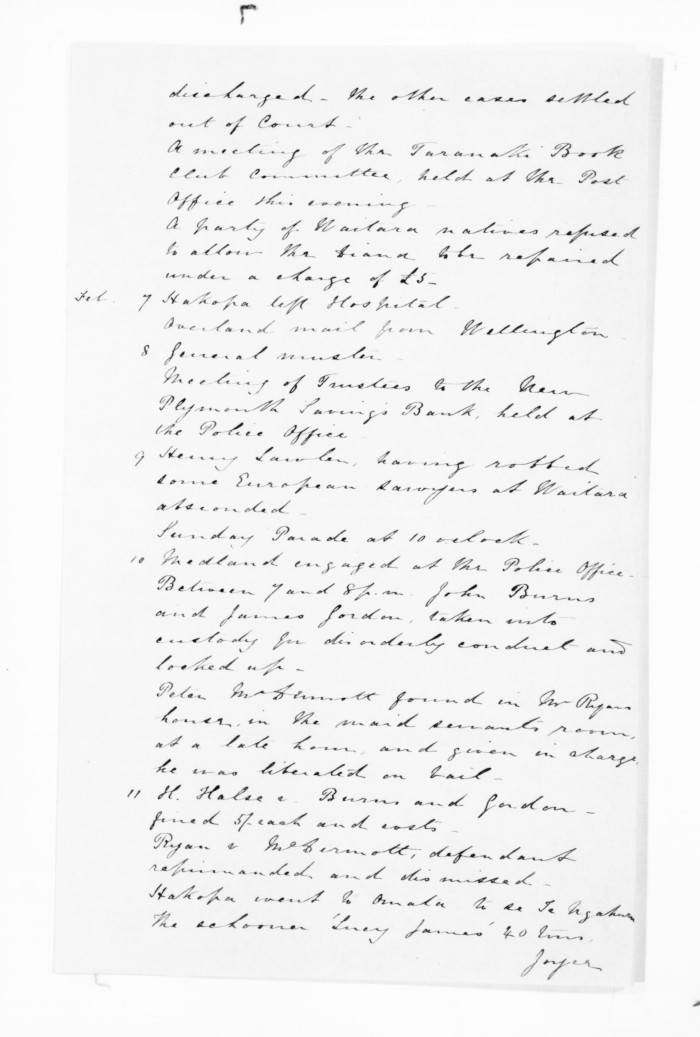 discharged - the other cases settled
out of Court -
A meeting of the Taranaki Book
Club Committee, held at the Post
Office this evening -
A party of Waitara natives refused
to allow the Diana to be repaired
under a charge of £5 -
Feb. 7 Hakopa left Hospital -
Overland mail from Wellington -
8 General muster -
Meeting of Trustees to the New
Plymouth Savings Bank, held at
the Police Office -
9 Henry Lawler, having robbed
some European sawyers at Waitara
absconded -
Sunday Parade at 10 oclock -
10 Medland engaged at the Police Office -
Between 7 and 8 p.m. John Burns
and James Gordon, taken into
custody for disorderly conduct and
locked up -
Peter McDermott found in Mr Ryans
house, in the maid servants room,
at a late hour, and given in charge,
he was liberated on bail -
11 H. Halse v. Burns and Gordon -
fined 5/- each and costs -
Ryan v McDermott, defendant
reprimanded and dismissed -
Hakopa went to Omata to se Te Ngahuru
The schooner 'Lucy James' 40 tons,
Joyce